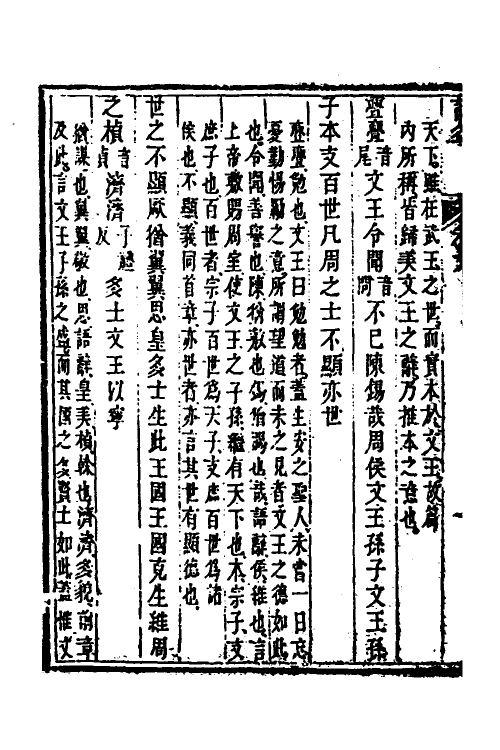 天下雖在武王之世而實本於文王故篇
內所稱皆歸美文王之辭乃推本之意也
亹亹音尾文王令聞音問不已陳錫哉周侯文王孫子文王孫
子本支百世凡周之士不顯亦世
亹亹勉也文王日勉勉者蓋生安之聖人未嘗一日忘
憂勤惕勵之意所謂望道而未之見者文王之德如此
也令聞善譽也陳猶敷也錫猶賜也哉語辭侯維也言
上帝敷賜周室使文王之子孫繼有天下也本宗子支
庶子也百世者宗子百世爲天子支庶百世爲諸
侯也不顯義同首章亦世者亦言其世有顯德也
世之不顯厥猶翼翼思皇多士生此王國王國克生維周
之楨音貞濟濟子禮反多士文王以寧
猶謀也翼翼敬也思語辭皇美楨榦也濟濟多貌前章
及此言文王子孫之盛而其國之多賢士如此蓋推文